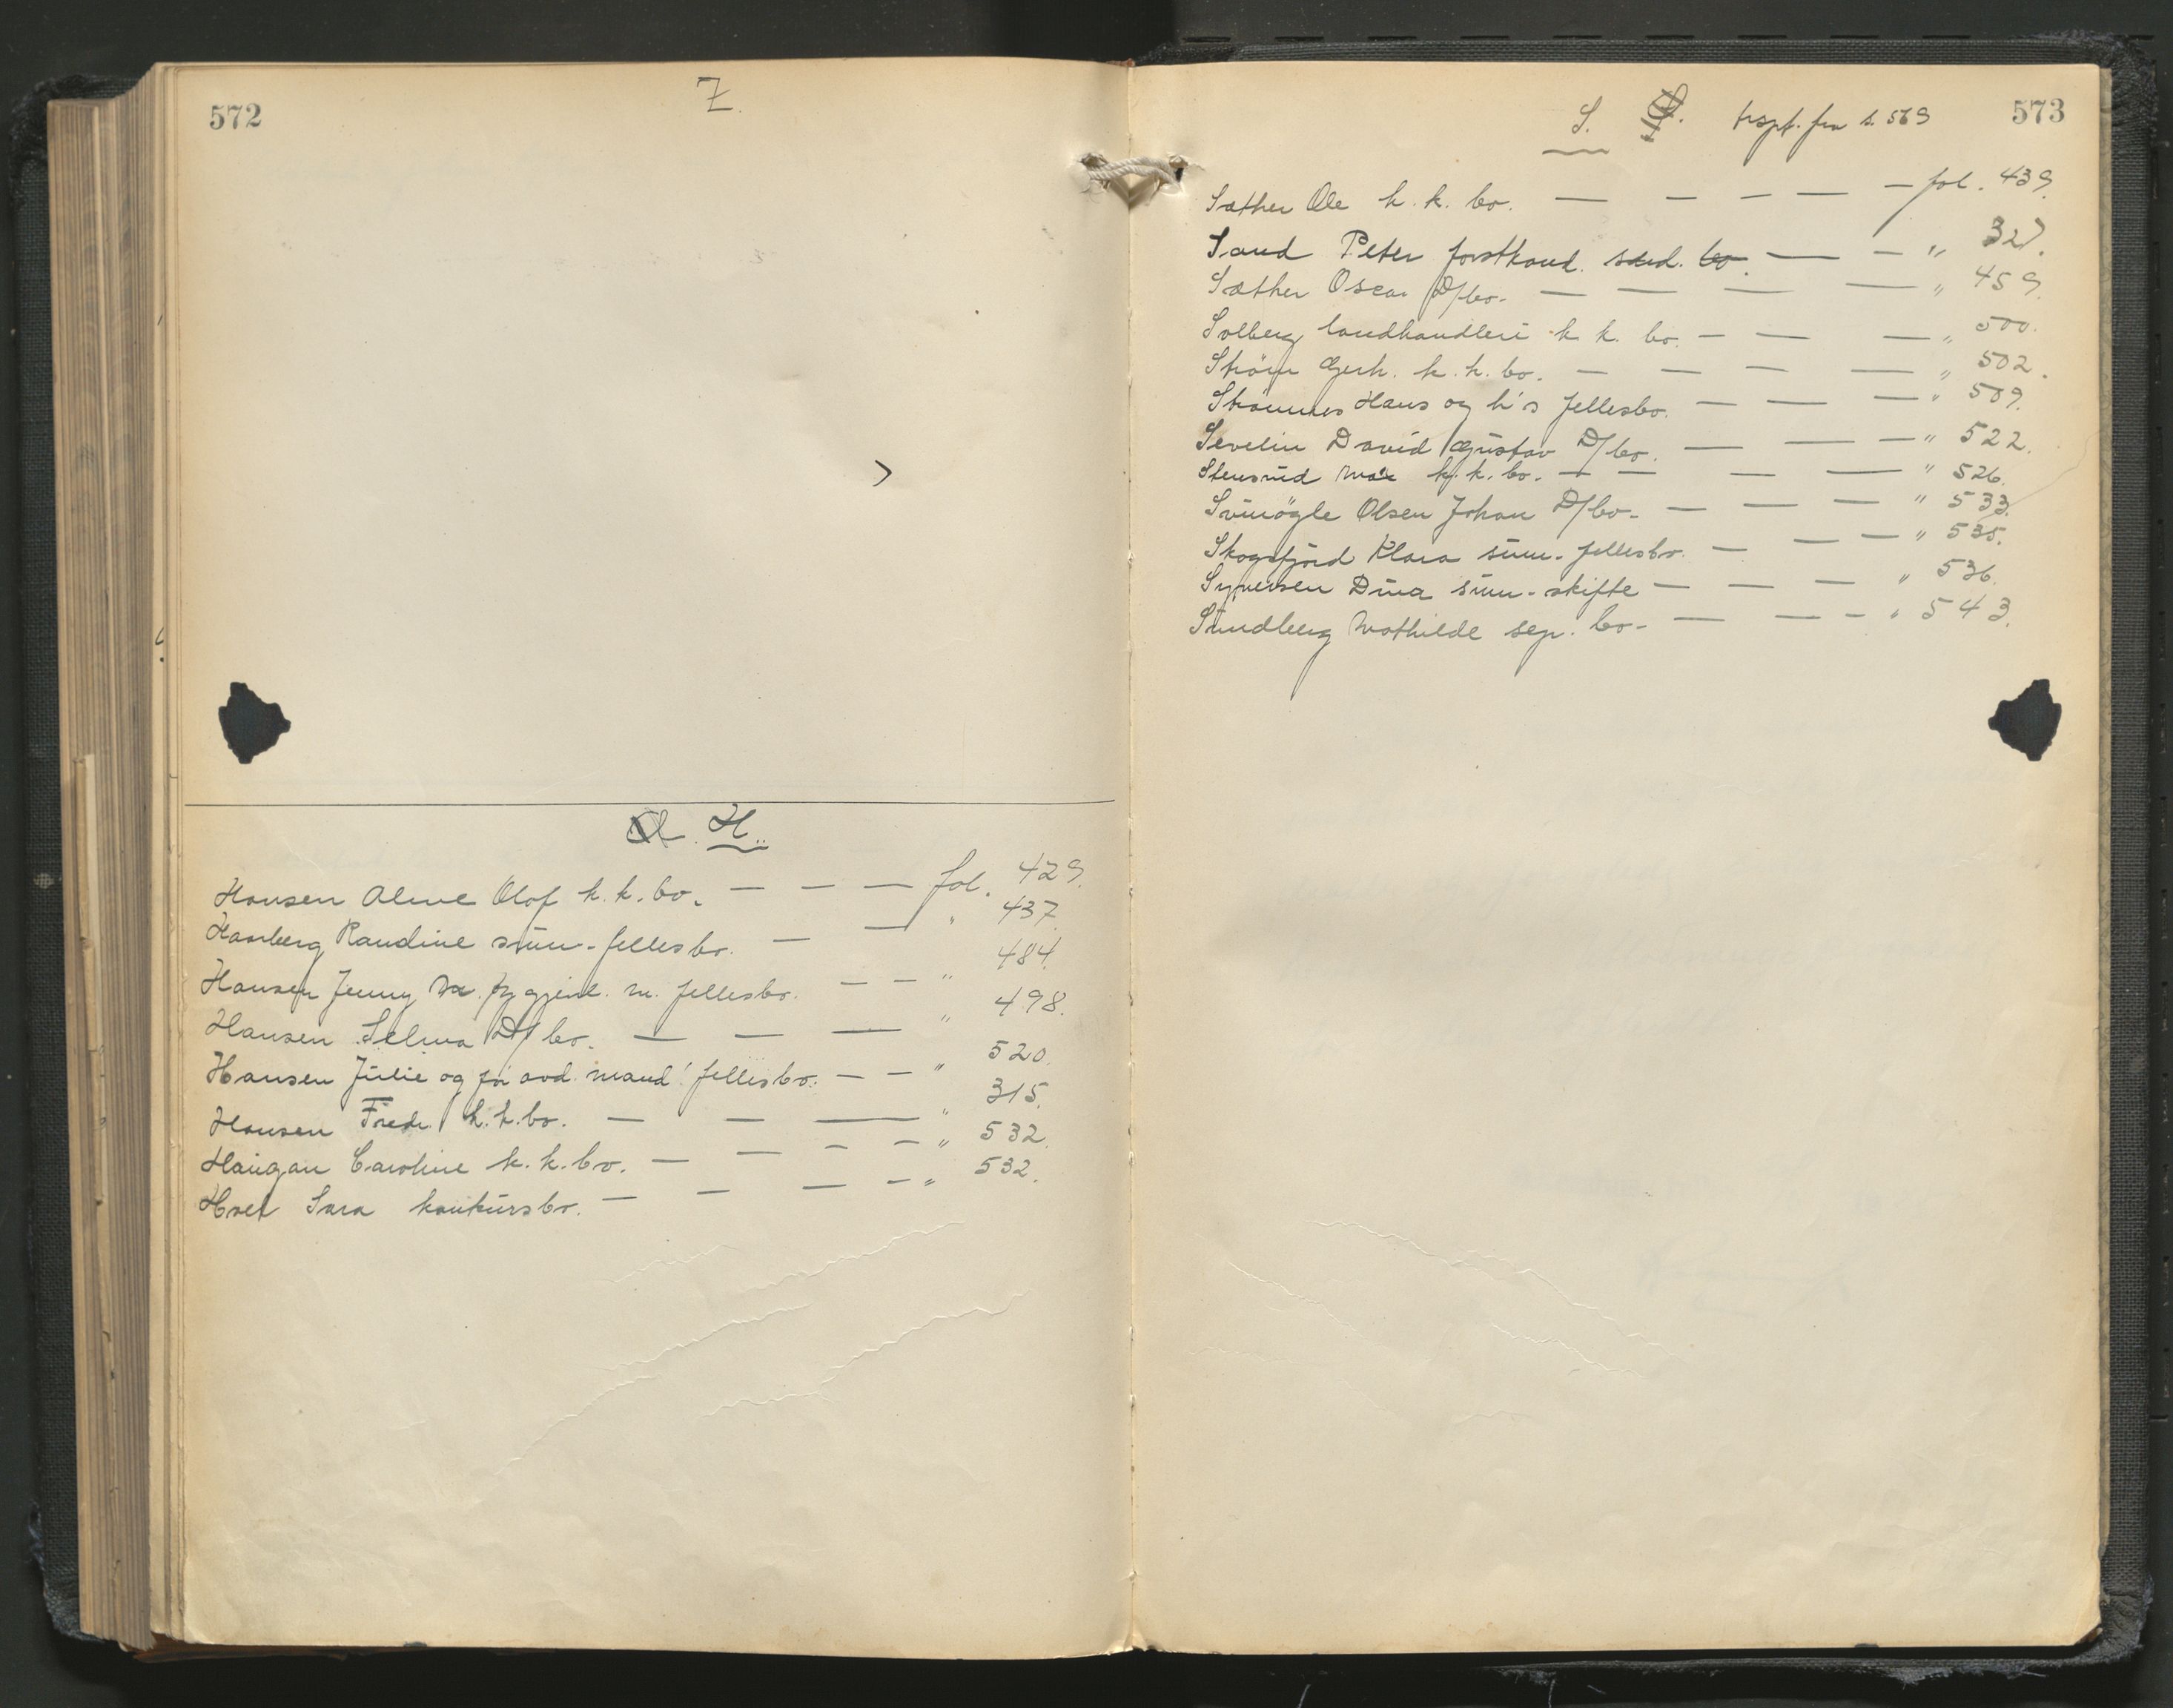 572
Z.
H.
Hansen Alme Olof k.k.bo. — — — fol. 429.
Haarberg Randine sum. fellesbo. — — " 437.
Hansen Jenny gjenl. m. fellesbo. — — " 484.
Hansen Selma D/bo. — — — " 498.
Hansen Julie og avd. mand fellesbo. — — " 520.
Hansen Fredr. k.k.bo. — — — " 315.
Haugan Caroline k.k.bo. — — — — " 532.
Hoel Sara konkursbo. — — — — " 532.
573
S. trspt. fra s. 569
Sæther Ole k.k. bo. — — — — — fol. 439.
Sand Peter forstkand. sked. bo. — — " 327.
Sæther Oscar D/bo. — — — — " 459.
Solberg landhandleri k.k. bo. — — — " 500.
Ström Gerh. k.k.bo. — — — — " 502.
Strömnes Hans og h's fellesbo. — — — " 509.
Sevelin David Gustav D/bo. — — — " 522.
Stensrud k.k.bo. — — — — " 526.
Svinögle Olsen Johan D/bo. — — — " 533.
Skogsfjord Klara sum. fellesbo. — — — " 535.
Syversen Dina sum. skifte — — — " 536.
Sundberg Mathilde sep. bo. — — — " 543.